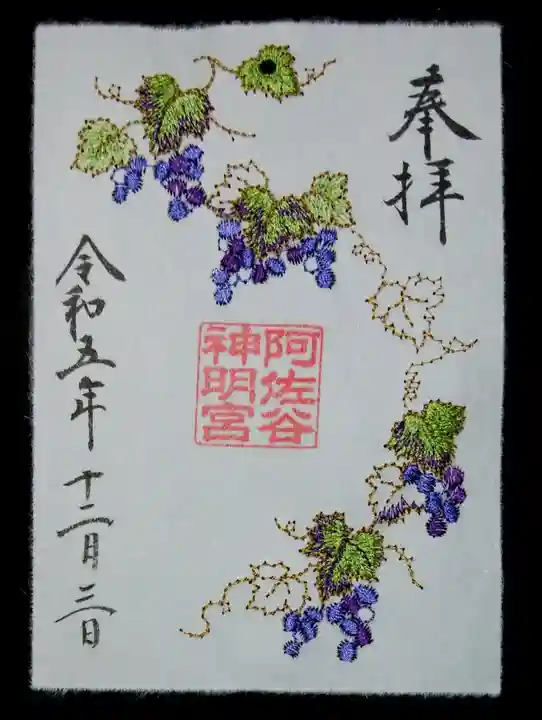 奉拝
阿佐谷
神明宮
令和五年十二月三日